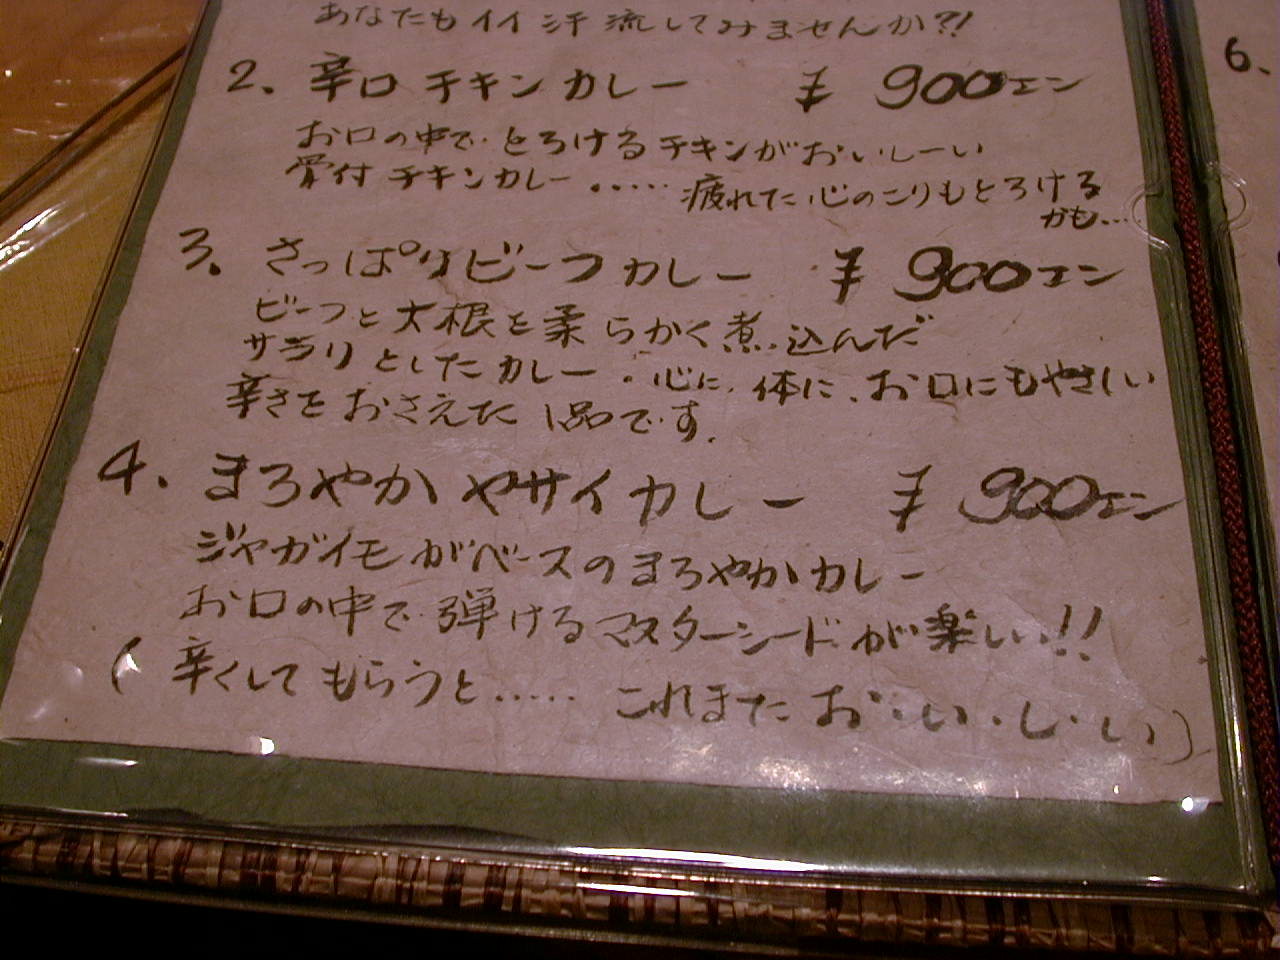 あなたもイイ汗流してみませんか?!
2. 辛口チキンカレー ¥900エン
お口の中でとろけるチキンがおいしーい
骨付チキンカレー ‥‥‥疲れた心のこりもとろける
かも…
3. さっぱりビーフカレー ¥900エン
ビーフと大根を柔らかく煮込んだ
サラリとしたカレー。心に、体に、お口にもやさしい
辛さをおさえた1品です。
4. まろやかヤサイカレー ¥900エン
ジャガイモがベースのまろやかカレー
お口の中で弾けるマスターシードが楽しい!!
(辛くしてもらうと‥‥‥これまたお・い・し・い)
6.